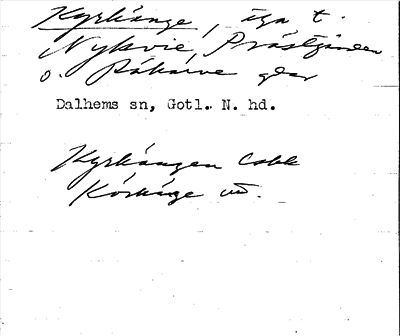 Kyrkänge, äga t.
Nykvie, Prästgården
o. Råkarve gdar
Dalhems sn, Gotl. N. hd.
Kyrkängen
Körkänge